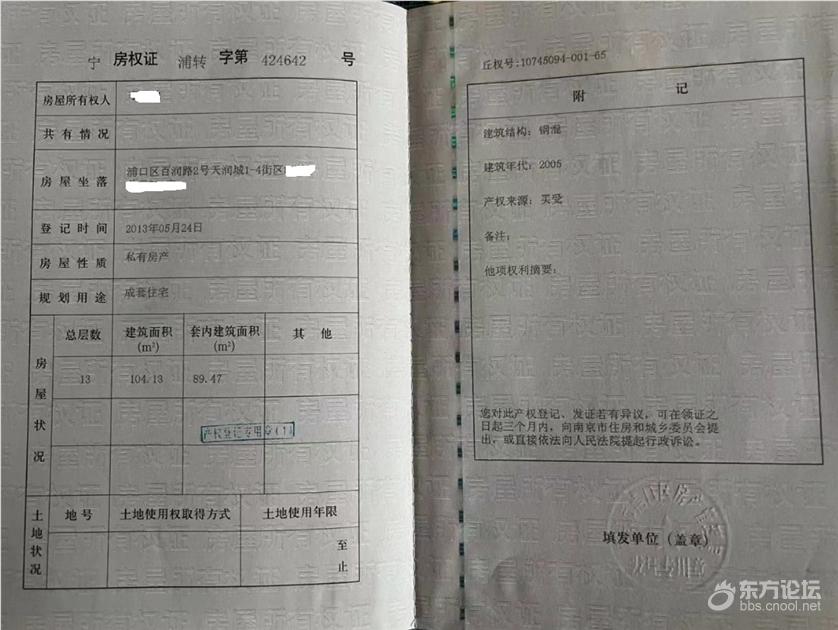 宁 房权证 浦转 字第 424642 号
房屋所有权人
共有情况
房屋坐落 浦口区百润路2号天润城1-4街区
登记时间 2013年05月24日
房屋性质 私有房产
规划用途 成套住宅
房屋状况
总层数 建筑面积(m²) 套内建筑面积(m²) 其他
13 104.13 89.47
产权登记专用章(1)
土地状况
地号 土地使用权取得方式 土地使用年限
至
止
丘权号:10745094-001-65
附 记
建筑结构: 钢混
建筑年代: 2005
产权来源: 买受
备注:
他项权利摘要:
您对此产权登记、发证若有异议,可在领证之
日起三个月内,向南京市住房和城乡委员会提
出,或直接依法向人民法院提起行政诉讼。
填发单位(盖章)
东方论坛
bbs.cnool.net